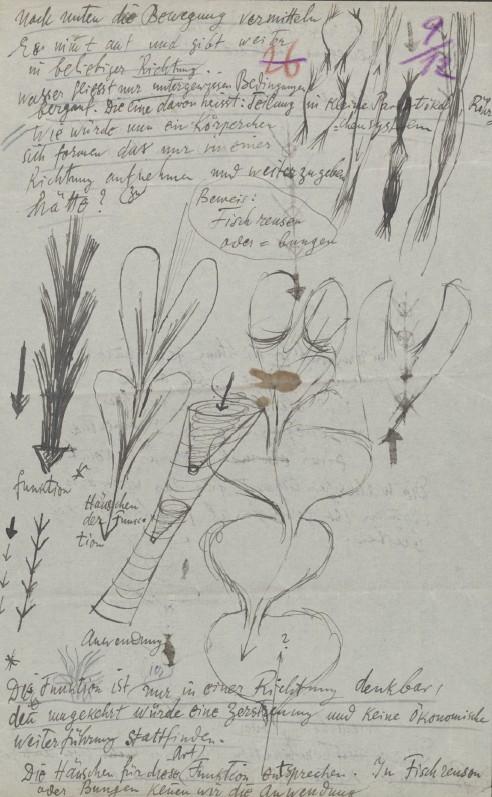 Nach unten die Bewegung vermitteln
Er nimt auf und gibt weiter
in beliebiger Richtung..
26
9/12
Wasser fliesst nur unter gewissen Bedingungen
bergauf. Die eine davon heisst: Leitung in kleine
Wie würde nun ein Körperchen
sich formen das nur in einer
Richtung aufnehmen und weiterzugeben
hätte?
Beweis:
Fischreusen
oder = bungen
funktion *
Häuschen
der Funk-
tion
Anwendung
?
*
Die Funktion ist nur in einer Richtung denkbar,
den umgekehrt würde eine Zerstreuung und keine Ökonomische
weiterführung stattfinden.
Die Häuschen für diese Art Funktion entsprechen. In Fischreusen
oder Bungen kenen wir die Anwendung